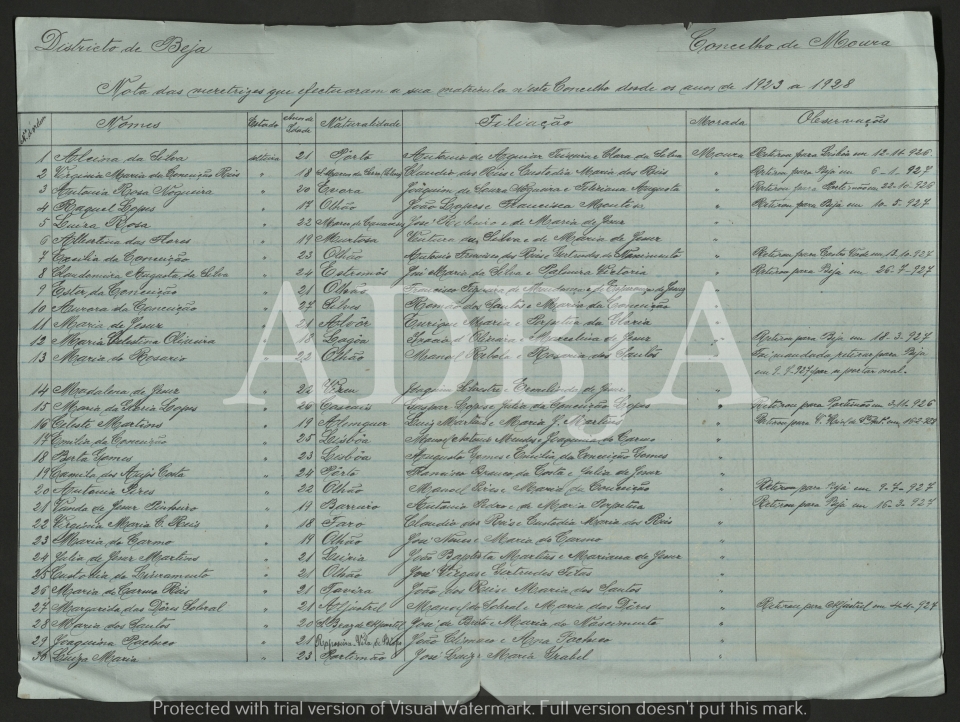 Districto de Beja Concelho de Moura
Nota das meretrizes que efectuaram a sua matricula n'este Concelho desde os anos de 1923 a 1928
Nomes Estado Anos de Idade Naturalidade Filiação Morada Observações
1 Alcina da Silva solteira 21 Pôrto Antonio de Aguiar Teixeira e Clara da Silva Moura Retirou para Lisbôa em 12-11-926
2 Virginia Maria da Conceição Reis " 18 Claudio dos Reis e Custodia Maria dos Reis " Retirou para Beja em 6-1-927
3 Antonia Rosa Nogueira " 20 Evora Joaquim de Nogueira e Augusta " Retirou para em 22-10-926
4 Raquel Lopes " 17 Olhão João Lopes e Francisca " Retirou para Beja em 10-5-927
5 Luiza Rosa " 22 José e de Maria de Jesus "
6 Albertina das Flores " 19 Murtosa Ventura da Silva e de Maria de Jesus "
7 Cecilia da Conceição " 23 Olhão Antonio Francisco dos Reis e Gertrudes do Nascimento " Retirou para
8 Claudemira Augusta da Silva " 24 Estremôs José Maria da Silva e Palmira Victoria " Retirou para Beja em 26-7-927
9 Ester da Conceição " 21 Olhão Francisco "
10 Aurora da Conceição " 27 Silves dos Santos e Maria da Conceição "
11 Maria de Jesus " 21 Alvôr Enrique Maria e da Gloria "
12 Maria Celestina Oliveira " 18 d'Oliveira e Marcelina de Jesus " Retirou para Beja em 18-3-927
13 Maria do Rosario " 22 Olhão Manoel e Rosaria dos Santos " Foi mandada retirar para Beja
em 9-7-927 por se portar mal
14 Magdalena de Jesus " 26 Joaquim Silvestre e de Jesus "
15 Maria da Gloria Lopes " 20 Cascais Lopes e Julia da Conceição Lopes " Retirou para Portimão em
16 Celeste Martins " 19 Alemquer Luiz Martins e Maria J. Martins " Retirou para
17 Emilia da Conceição " 25 Lisbôa Mendes e Joaquina do Carmo "
18 Berta Gomes " 23 Lisbôa Augusto Gomes e Emilia da Conceição Gomes "
19 Camila dos Anjos Costa " 24 Pôrto Francisco da Costa e Julia de Jesus "
20 Antonia Pires " 22 Olhão Manoel Pires e Maria da Conceição " Retirou para Beja em 9-7-927
21 Vanda de Jesus Pinheiro " 19 Barreiro Antonio Pedro e de Maria Perpetua " Retirou para Beja em 16-3-927
22 Virginia Maria C. Reis " 18 Faro Claudio dos Reis e Custodia Maria dos Reis "
23 Maria do Carmo " 19 Olhão José Nunes e Maria do Carmo "
24 Julia de Jesus Martins " 21 Leiria João Baptista Martins e Mariana de Jesus "
25 Custodia do Livramento " 21 Olhão José Viegas e Gertrudes "
26 Maria do Carmo Reis " 21 Tavira João dos Reis e Maria dos Santos "
27 Margarida das Dôres Sobral " 21 Aljustrel Manoel Sobral e Maria das Dôres " Retirou para Aljustrel em 4-4-927
28 Maria dos Santos " 20 S. Braz d'Alportel José de Brito e Maria do Nascimento "
29 Joaquina Pacheco " 21 João Climaco e Ana Pacheco "
30 Luiza Maria " 23 Portimão José Luiz e Maria Izabel "
ADBJA
Protected with trial version of Visual Watermark. Full version doesn't put this mark.